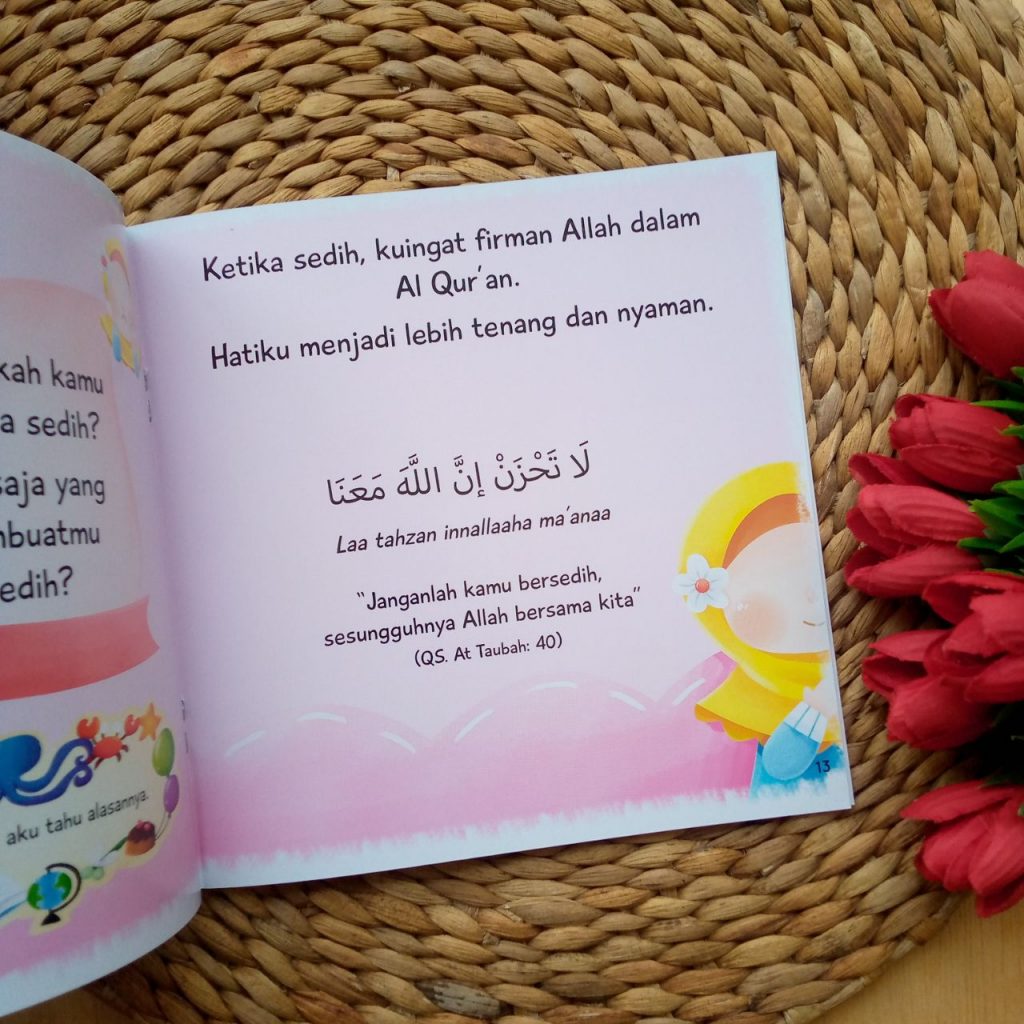 kamu
sedih?
yang
aku tahu alasannya.
Ketika sedih, kuingat firman Allah dalam
Al Qur'an.
Hatiku menjadi lebih tenang dan nyaman.
لَا تَحْزَنْ إِنَّ اللَّهَ مَعَنَا
Laa tahzan innallaaha ma'anaa
"Janganlah kamu bersedih,
sesungguhnya Allah bersama kita"
(QS. At Taubah: 40)
13